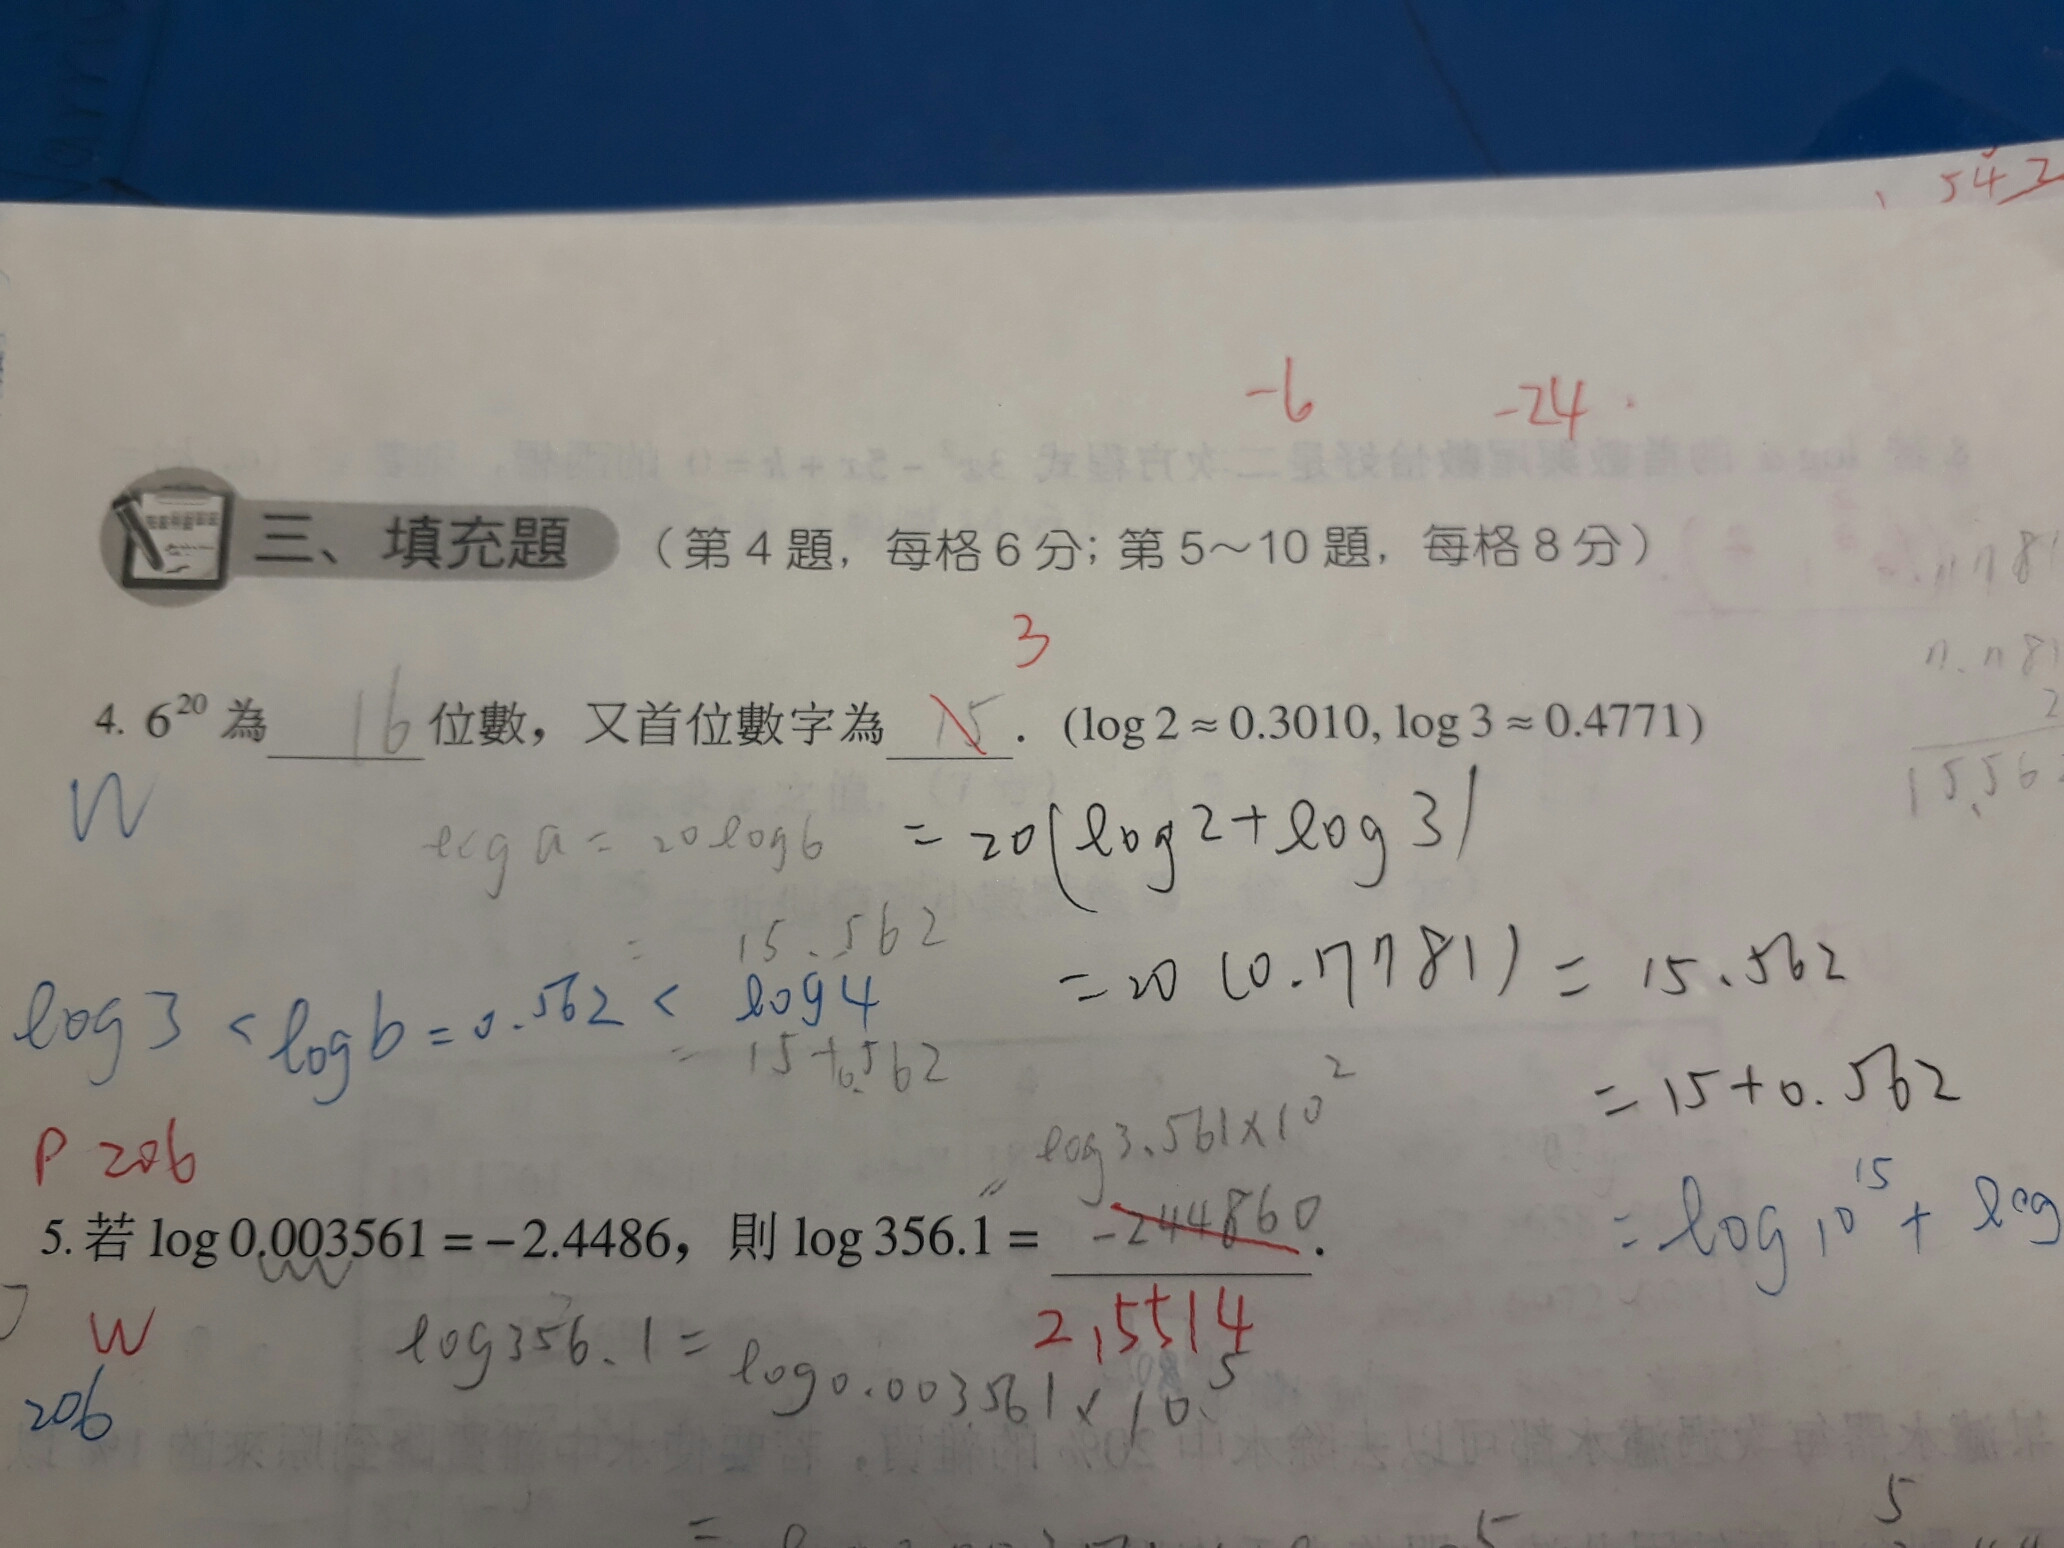 542
-6 -24
三、填充題 (第4題, 每格6分; 第5～10題, 每格8分)
3
4. 6^20 為 16 位數, 又首位數字為 15 . (log 2 ≈ 0.3010, log 3 ≈ 0.4771)
W
log a = 20 log 6 = 20(log 2 + log 3)
= 15.562 = 20 (0.7781) = 15.562
log 3 < log b = 0.562 < log 4
= 15 + 0.562 = 15 + 0.562
P 206
= log 3.561 × 10^2
= log 10^15 + log
5. 若 log 0.003561 = −2.4486, 則 log 356.1 = -244860 .
2.5514
W
log 356.1 = log 0.003561 × 10^5
206